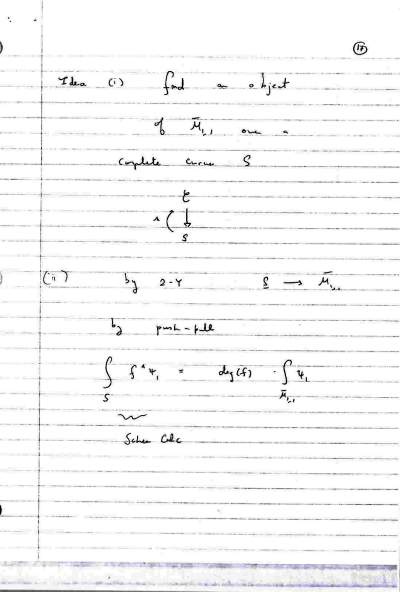 17
Idea (i) find an object
of M̄₁,₁ over a
complete curve S
C
s ( ↓
S
(ii) by 2-Y S → M̄₁,₁
by push-pull
∫_S f*ψ₁ = deg(f) · ∫_M̄₁,₁ ψ₁
Scheme Calc